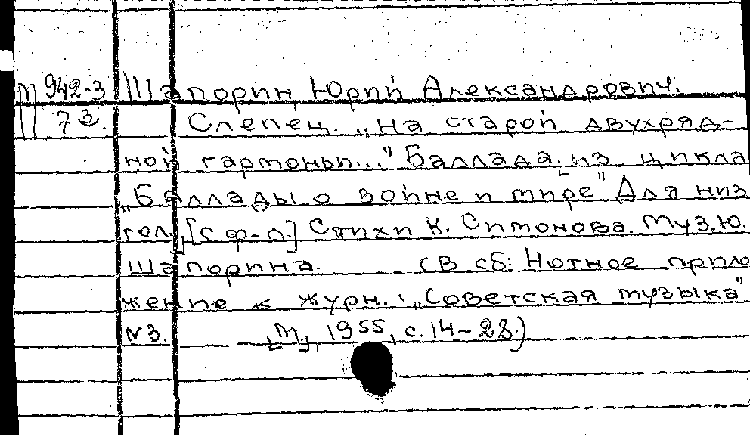 П 942-3 Шапорин, Юрий Александрович.
73. Слепец. „На старой двухряд-
ной гармоньи..." Баллада, из цикла
„Баллады о войне и мире" Для низ.
гол., [с ф-п.] Стихи К. Симонова. Муз. Ю.
Шапорина. (В сб: Нотное прило
жение к журн.: „Советская музыка"
№3. М., 1955, с. 14-28)